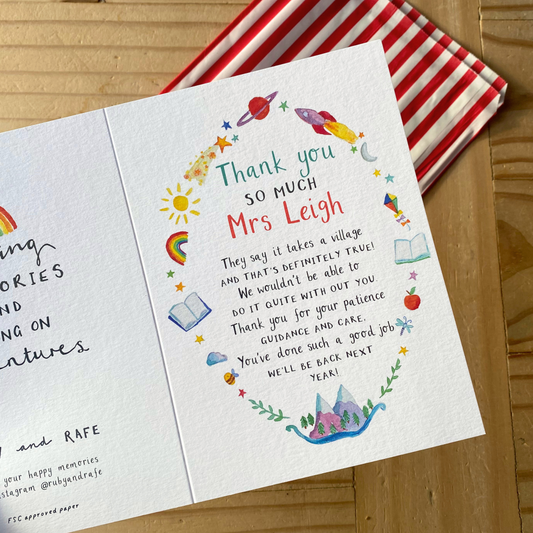 ing
ORIES
ND
NG ON
entures
and RAFE
your happy memories
nstagram @rubyandrafe
FSC approved paper
Thank you
SO MUCH
Mrs Leigh
They say it takes a village
AND THAT'S DEFINITELY TRUE!
We wouldn't be able to
DO IT QUITE WITH OUT YOU
Thank you for your patience
GUIDANCE AND CARE.
You've done such a good job
WE'LL BE BACK NEXT
YEAR!